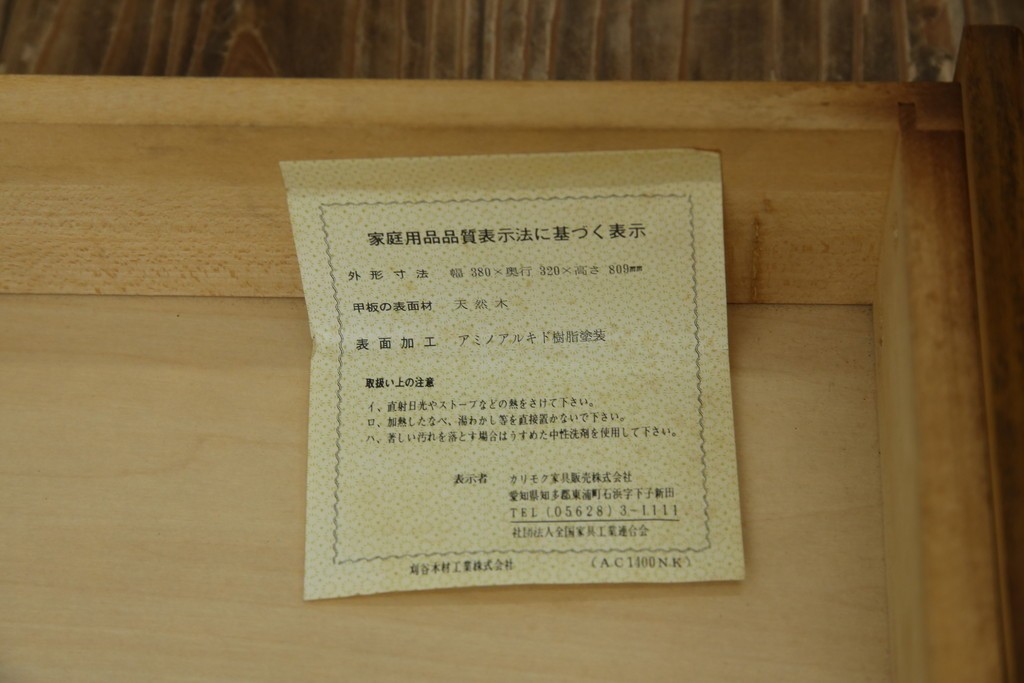 家庭用品品質表示法に基づく表示
外形寸法 幅 380×奥行 320×高さ 809mm
甲板の表面材 天然木
表面加工 アミノアルキド樹脂塗装
取扱い上の注意
イ、直射日光やストーブなどの熱をさけて下さい。
ロ、加熱したなべ、湯わかし等を直接置かないで下さい。
ハ、著しい汚れを落とす場合はうすめた中性洗剤を使用して下さい。
表示者 カリモク家具販売株式会社
愛知県知多郡東浦町石浜字下子新田
TEL (05628) 3-1111
社団法人全国家具工業連合会
刈谷木材工業株式会社 (AC1400NK)